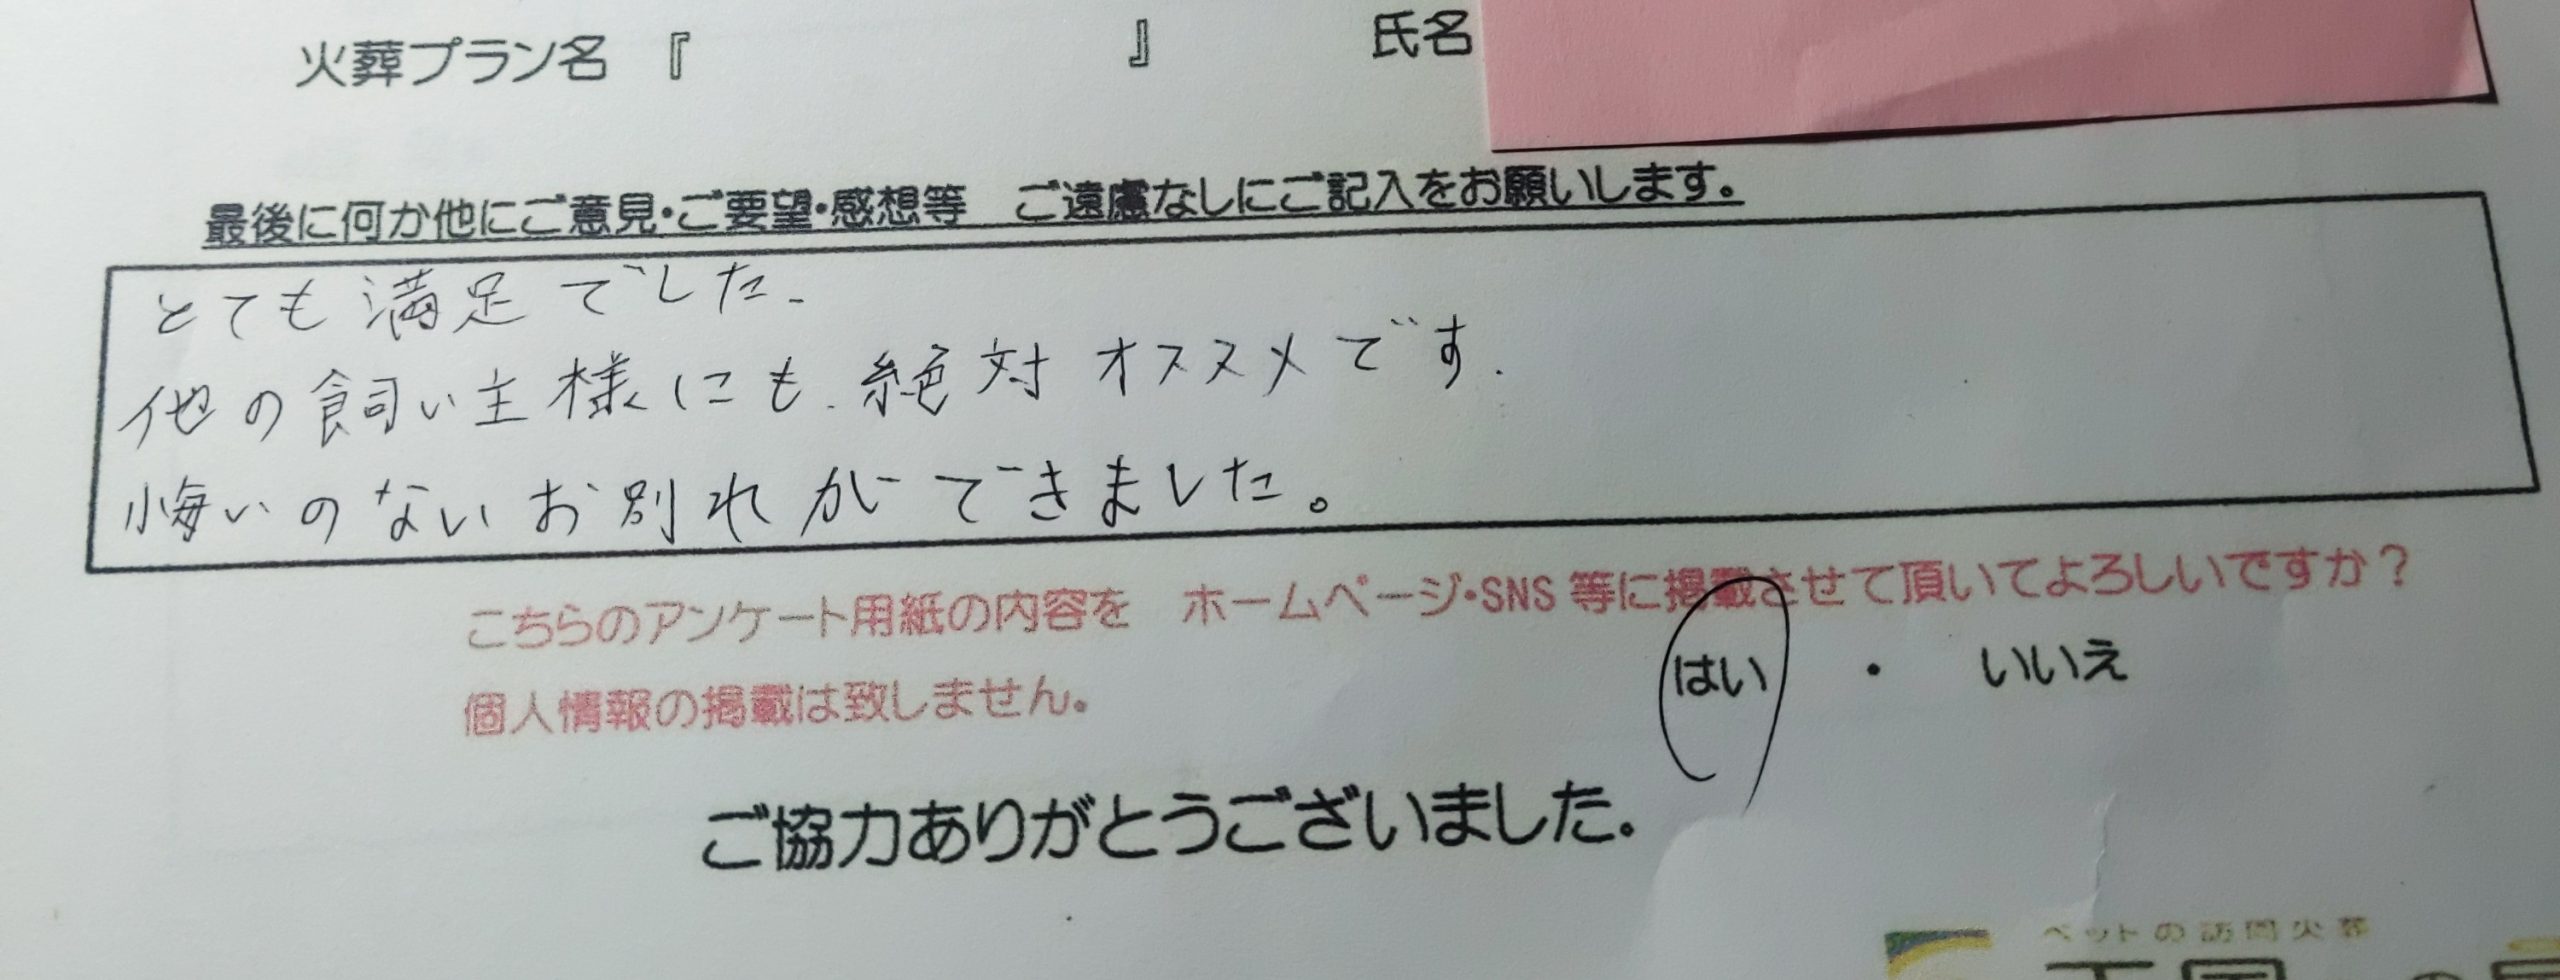 火葬プラン名 『 』 氏名
最後に何か他にご意見・ご要望・感想等 ご遠慮なしにご記入をお願いします。
とても満足でした.
他の飼い主様にも.絶対オススメです.
悔いのないお別れができました。
こちらのアンケート用紙の内容を ホームページ・SNS等に掲載させて頂いてよろしいですか？
はい ・ いいえ
個人情報の掲載は致しません。
ご協力ありがとうございました.
ペットの訪問火葬